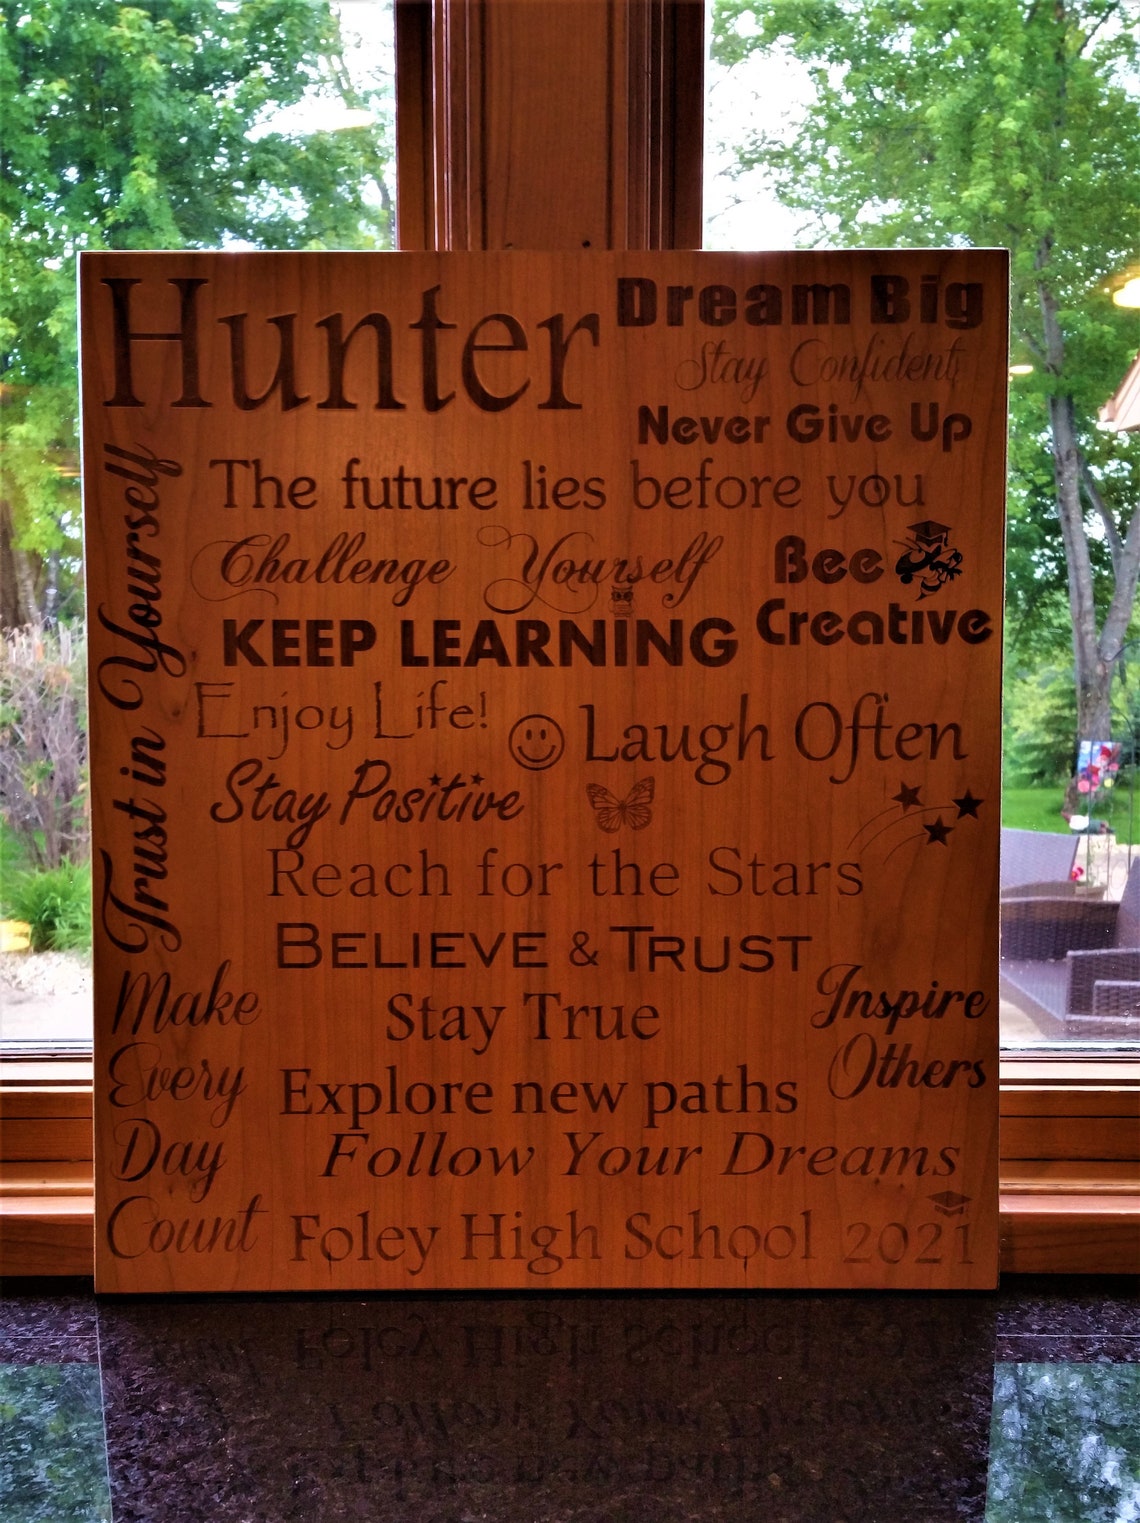 Hunter
Dream Big
Stay Confident
Never Give Up
Trust in Yourself
The future lies before you
Challenge Yourself
Bee
Creative
KEEP LEARNING
Enjoy Life!
Laugh Often
Stay Positive
Reach for the Stars
BELIEVE & TRUST
Make
Every
Day
Count
Stay True
Inspire
Others
Explore new paths
Follow Your Dreams
Foley High School 2021